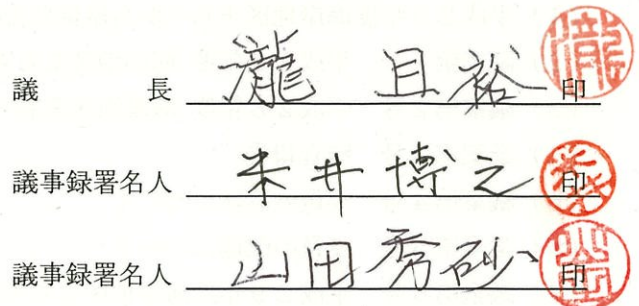 議長 瀧 且裕 印
議事録署名人 米井博之 印
議事録署名人 山田秀砂 印